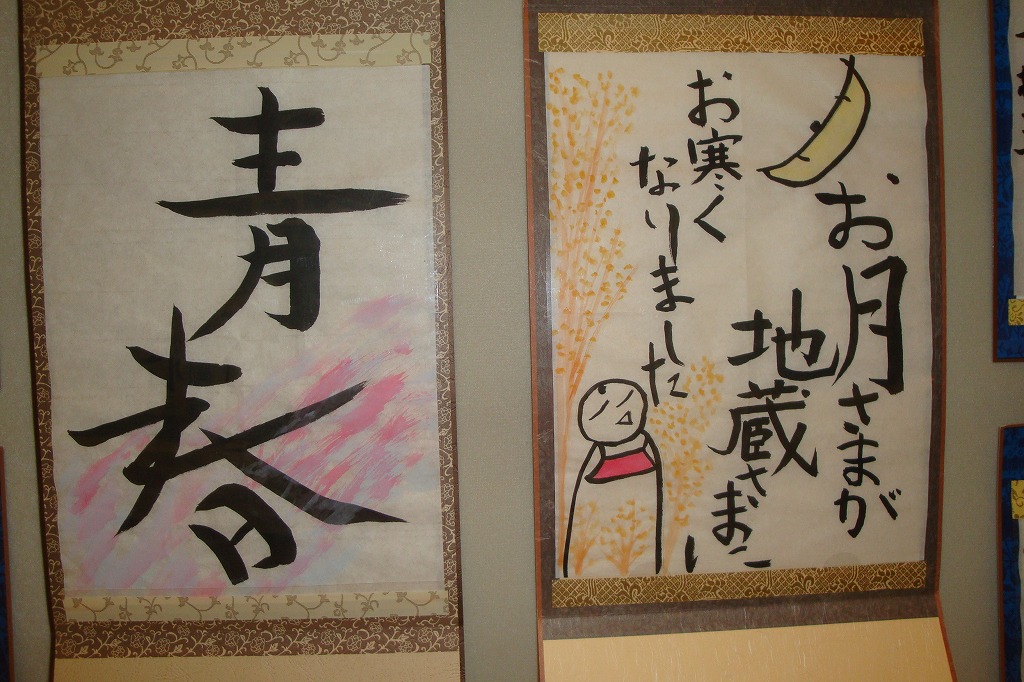 お月さまが
地蔵さまに
お寒く
なりました
青春